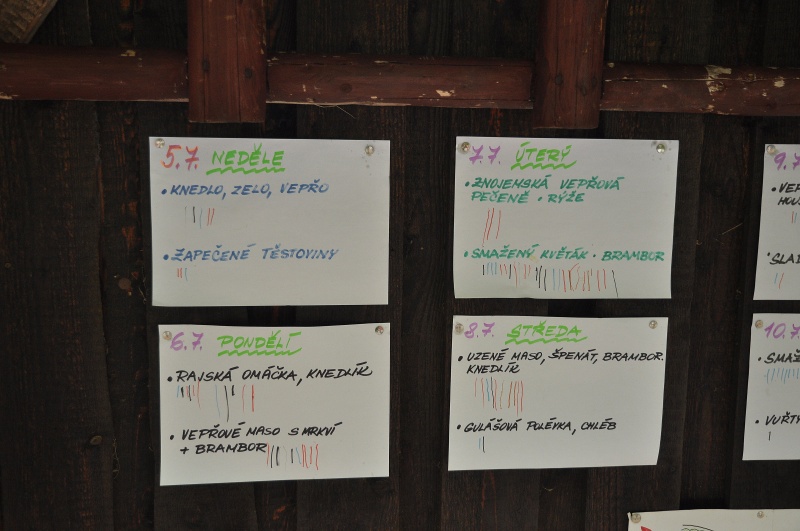 5.7. NEDĚLE
• KNEDLO, ZELO, VEPŘO
• ZAPEČENÉ TĚSTOVINY
6.7. PONDĚLÍ
• RAJSKÁ OMÁČKA, KNEDLÍK
• VEPŘOVÉ MASO S MRKVÍ
+ BRAMBOR
7.7. ÚTERÝ
• ZNOJEMSKÁ VEPŘOVÁ
PEČENĚ • RÝŽE
• SMAŽENÝ KVĚTÁK • BRAMBOR
8.7. STŘEDA
• UZENÉ MASO, ŠPENÁT, BRAMBOR.
KNEDLÍK
• GULÁŠOVÁ POLÉVKA, CHLÉB
9.7.
10.7.